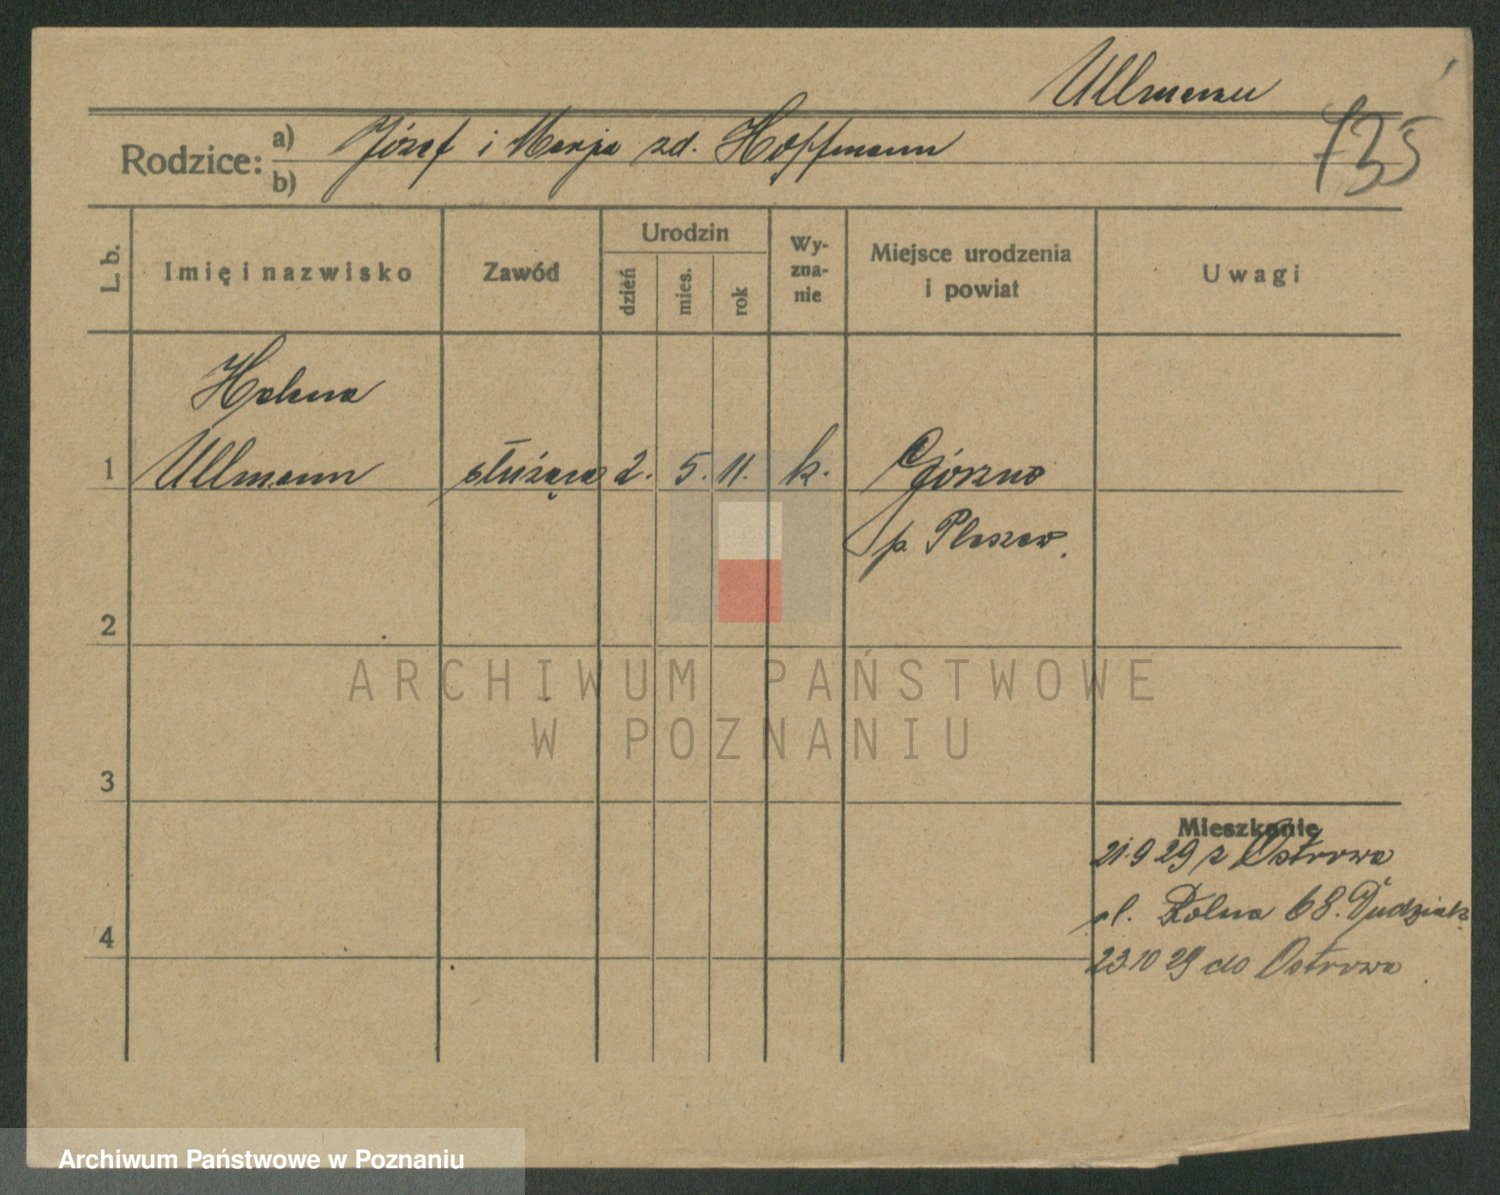 Ullmann
735
Rodzice:
a)
b)
Józef i Marja zd. Hoffmann
L. b.
Imię i nazwisko
Zawód
Urodzin
dzień
mies.
rok
Wy-
zna-
nie
Miejsce urodzenia
i powiat
Uwagi
Helena
1 Ullmann służąca 2. 5. 11. k. Górzno
p. Pleszew.
2
3
4
Mieszkanie
21.9 29 z Ostrowa
ul. Polna 68. Dudziak
23.10 29 do Ostrowa
ARCHIWUM PAŃSTWOWE
W POZNANIU
Archiwum Państwowe w Poznaniu